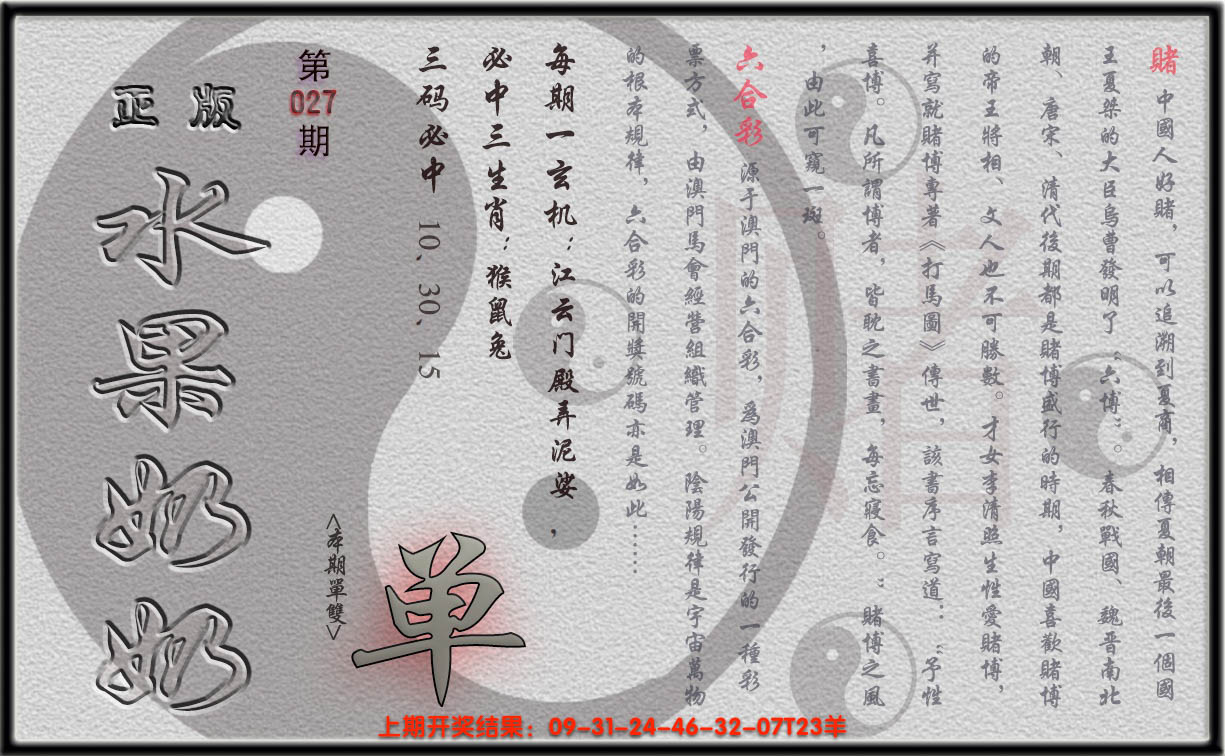 賭 中國人好賭，可以追溯到夏商，相傳夏朝最後一個國
王夏桀的大臣烏曹發明了“六博”。春秋戰國、魏晋南北
朝、唐宋、清代後期都是賭博盛行的時期，中國喜歡賭博
的帝王將相、文人也不可勝數。才女李清照生性愛賭博，
并寫就賭博專著《打馬圖》傳世，該書序言寫道：“予性
喜博。凡所謂博者，皆耽之書畫，每忘寢食。”賭博之風
，由此可窺一斑。
六合彩 源于澳門的六合彩，為澳門公開發行的一種彩
票方式，由澳門馬會經營組織管理。陰陽規律是宇宙萬物
的根本規律，六合彩的開獎號碼亦是如此……
每期一玄机：江云门殿弄泥娑，
必中三生肖：猴鼠兔
三码必中 10、30、15
第027期
<本期單雙>
单
正版
水果奶奶
賭
上期开奖结果：09-31-24-46-32-07T23羊